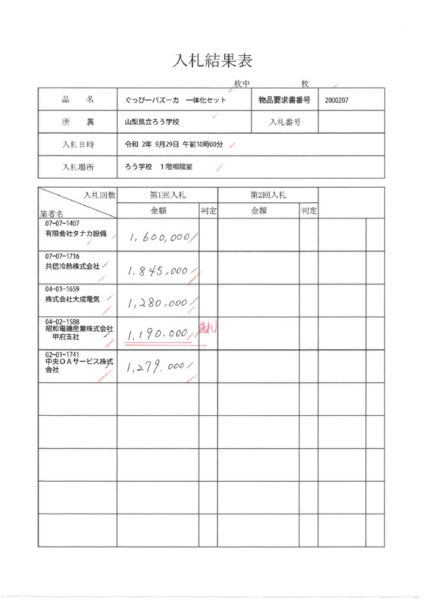 入札結果表
枚中 枚
品 名 ぐっぴーバズーカ 一体化セット 物品要求書番号 2000207
所 属 山梨県立ろう学校 入札番号
入札日時 令和 2年 9月29日 午前10時00分
入札場所 ろう学校 1階相談室
入札回数 第1回入札 第2回入札
業者名 金額 判定 金額 判定
07-07-1407
有限会社タナカ設備 1,600,000
07-07-1716
共信冷熱株式会社 1,845,000
04-01-1659
株式会社大成電気 1,280,000
04-02-1588
昭和電機産業株式会社
甲府支社 1,190,000 落札
02-01-1741
中央OAサービス株式
会社 1,279,000